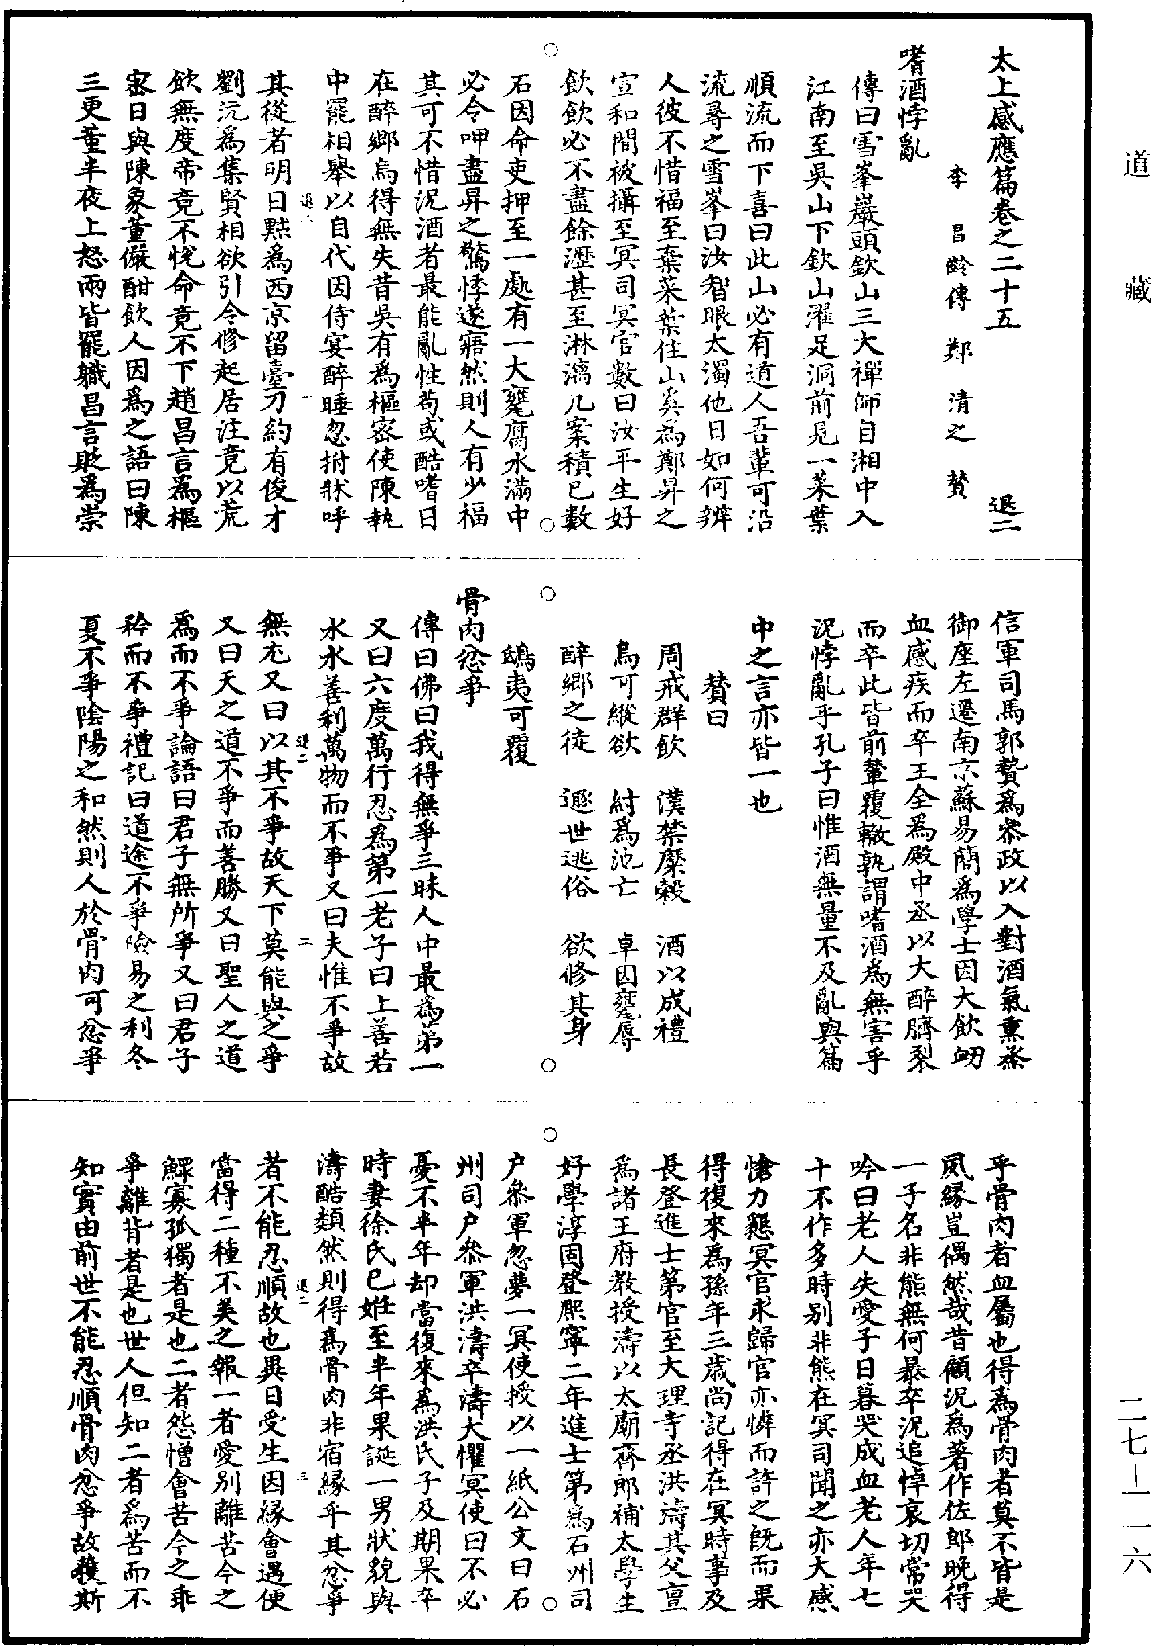 道藏
太上感應篇卷之二十五　退二
李昌齡傳　鄭清之贊
嗜酒悖亂
傳曰雪峯巖頭欽山三大禪師自湘中入
江南至吳山下欽山濯足澗前見一菜葉
順流而下喜曰此山必有道人吾輩可沿
流尋之雪峯曰汝智眼太濁他日如何辨
人彼不惜福至棄菜葉住山奚為鄭昇之
宣和間被攝至冥司冥官數曰汝平生好
飲飲必不盡餘瀝甚至淋漓几案積已數
石因命吏押至一處有一大甕腐水滿中
必令呷盡昇之驚悸遂寤然則人有少福
其可不惜況酒者最能亂性苟或酷嗜日
在醉鄉烏得無失昔吳有為樞密使陳執
中罷相舉以自代因侍宴醉睡忽拊牀呼
其從者明日黜為西京留臺刁約有俊才
劉沆為集賢相欲引令修起居注竟以荒
飲無度帝竟不悅命竟不下趙昌言為樞
密日與陳象董儼酣飲人因為之語曰陳
三更董半夜上怒兩皆罷職昌言貶為崇
退二　一
信軍司馬郭贄為叅政以入對酒氣熏烝
御座左遷南京蘇易簡為學士因大飲衂
血感疾而卒王全為殿中丞以大醉臍裂
而卒此皆前鼇覆轍孰謂嗜酒為無害乎
況悖亂乎孔子曰惟酒無量不及亂與篇
中之言亦皆一也
贊曰
周戒群飲　漢禁糜穀　酒以成禮
烏可縱欲　紂為池亡　卓因甕辱
醉鄉之徒　遯世逃俗　欲修其身
鴟夷可覆
骨肉忿爭
傳曰佛曰我得無爭三昧人中最為第一
又曰六度萬行忍為第一老子曰上善若
水水善利萬物而不爭又曰夫惟不爭故
無尤又曰以其不爭故天下莫能與之爭
又曰天之道不爭而善勝又曰聖人之道
為而不爭論語曰君子無所爭又曰君子
矜而不爭禮記曰道途不爭險易之利冬
夏不爭陰陽之和然則人於骨肉可忿爭
退二　二
乎骨肉者血屬也得為骨肉者莫不皆是
夙緣豈偶然哉昔顧況為著作佐郎晚得
一子名非熊無何暴卒況追悼哀切常哭
吟曰老人失愛子日暮哭成血老人年七
十不作多時别非熊在冥司聞之亦大感
愴力懇冥官求歸官亦憐而許之既而果
得復來為孫年三歲尚記得在冥時事及
長登進士第官至大理寺丞洪濤其父亶
為諸王府教授濤以太廟齊郎補太學生
好學淳固登熙寧二年進士第為石州司
户叅軍忽夢一冥使授以一紙公文曰石
州司户叅軍洪濤卒濤大懼冥使曰不必
憂不半年却當復來為洪氏子及期果卒
時妻徐氏已姙至半年果誕一男狀貌與
濤酷類然則得為骨肉非宿緣乎其忿爭
者不能忍順故也異日受生因緣會遇便
當得二種不美之報一者愛别離苦今之
鰥寡孤獨者是也二者怨憎會苦今之乖
爭離背者是也世人但知二者為苦而不
知實由前世不能忍順骨肉忿爭故獲斯
退二　三
二七—一六